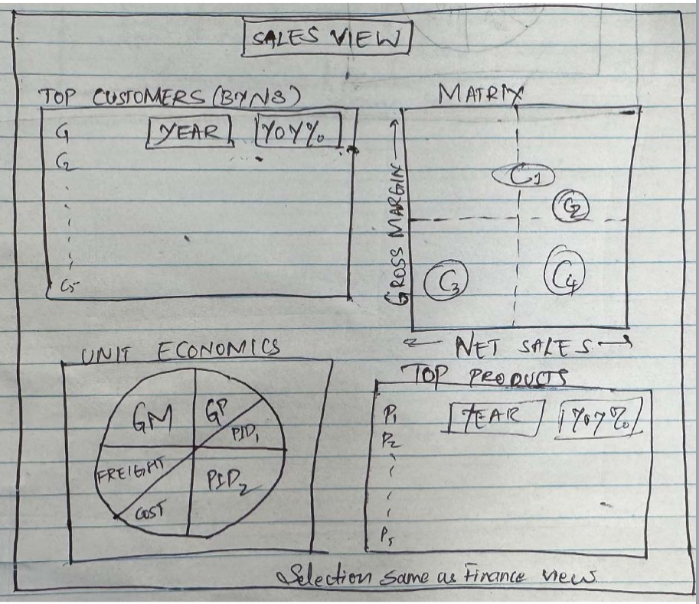 SALES VIEW
TOP CUSTOMERS (BY NS)
C1 YEAR YOY%
C2
C5
MATRIX
GROSS MARGIN
C1
C2
C3
C4
NET SALES
UNIT ECONOMICS
GM
GP
PID1
FREIGHT
PID2
COST
TOP PRODUCTS
P1 YEAR YOY%
P2
P5
Selection same as Finance view